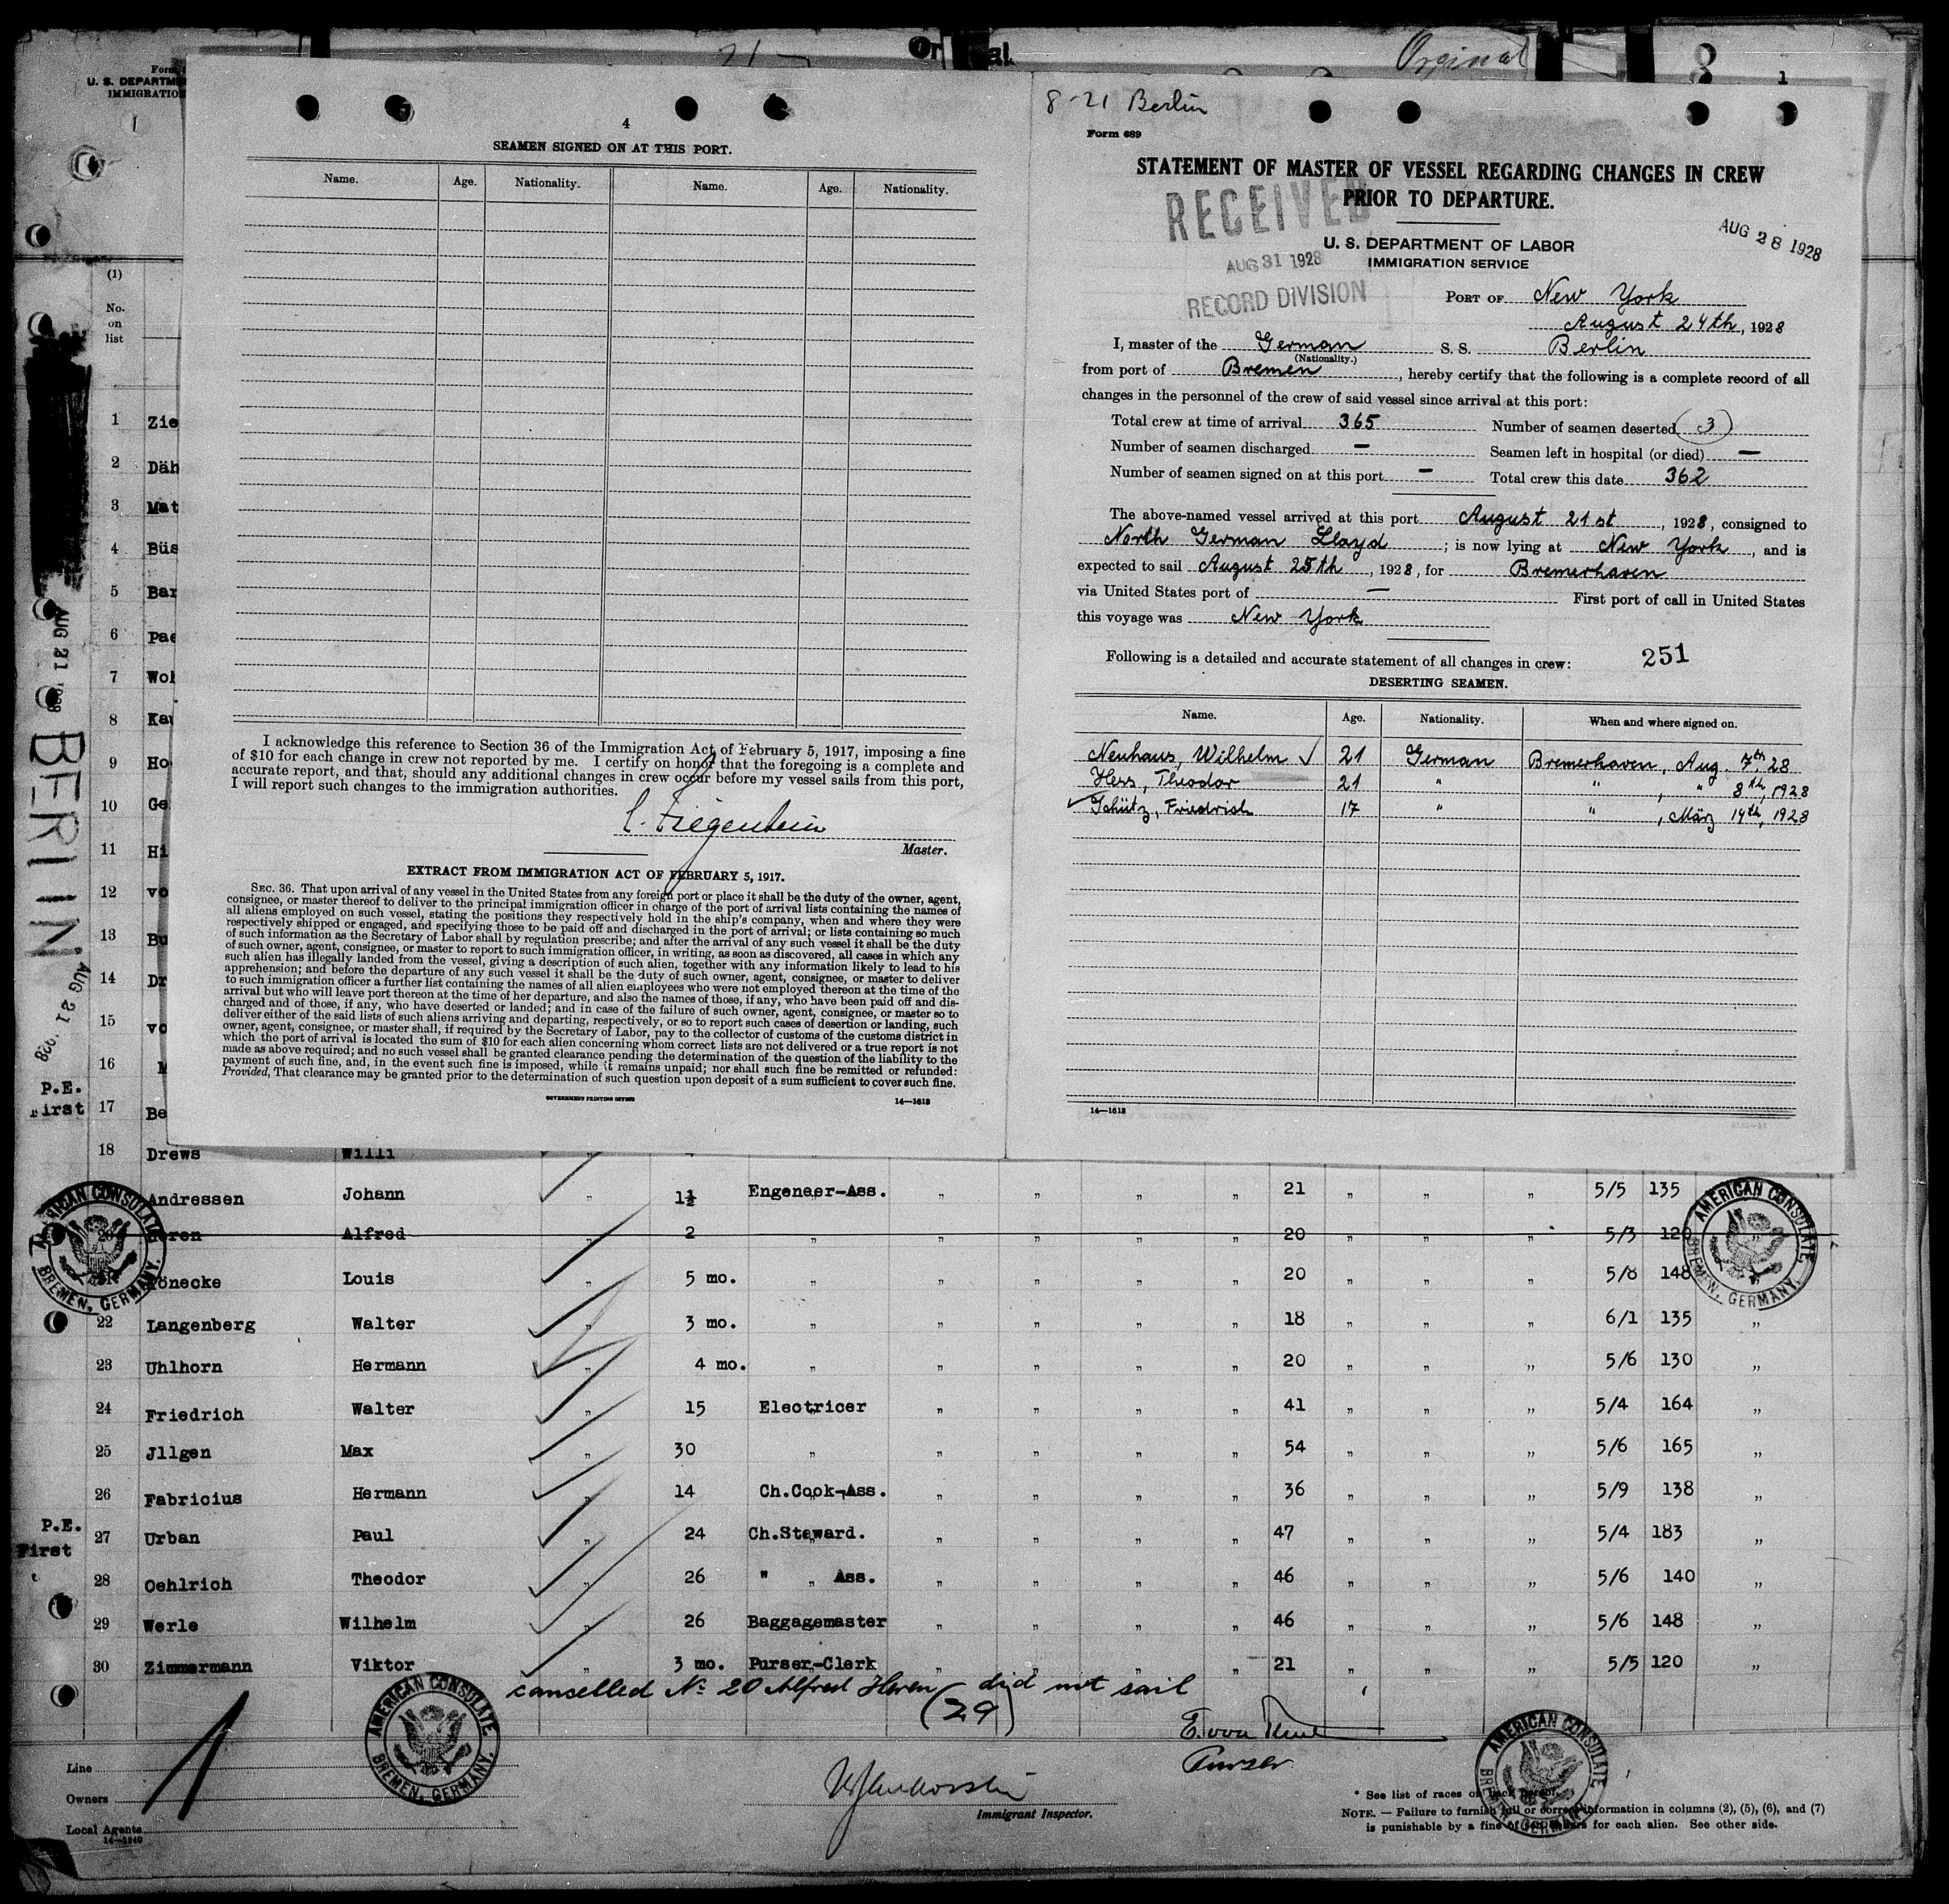 Orginal
8
1
U. S. DEPARTM
IMMIGRATION
8-21 Berlin
4
SEAMEN SIGNED ON AT THIS PORT.
Name. Age. Nationality. Name. Age. Nationality.
I acknowledge this reference to Section 36 of the Immigration Act of February 5, 1917, imposing a fine
of $10 for each change in crew not reported by me. I certify on honor that the foregoing is a complete and
accurate report, and that, should any additional changes in crew occur before my vessel sails from this port,
I will report such changes to the immigration authorities.
Master.
EXTRACT FROM IMMIGRATION ACT OF FEBRUARY 5, 1917.
SEC. 36. That upon arrival of any vessel in the United States from any foreign port or place it shall be the duty of the owner, agent,
consignee, or master thereof to deliver to the principal immigration officer in charge of the port of arrival lists containing the names of
all aliens employed on such vessel, stating the positions they respectively hold in the ship's company, when and where they were
respectively shipped or engaged, and specifying those to be paid off and discharged in the port of arrival; or lists containing so much
of such information as the Secretary of Labor shall by regulation prescribe; and after the arrival of any such vessel it shall be the duty
of such owner, agent, consignee, or master to report to such immigration officer, in writing, as soon as discovered, all cases in which any
such alien has illegally landed from the vessel, giving a description of such alien, together with any information likely to lead to his
apprehension; and before the departure of any such vessel it shall be the duty of such owner, agent, consignee, or master to deliver
to such immigration officer a further list containing the names of all alien employees who were not employed thereon at the time of the
arrival but who will leave port thereon at the time of her departure, and also the names of those, if any, who have been paid off and dis-
charged and of those, if any, who have deserted or landed; and in case of the failure of such owner, agent, consignee, or master so to
deliver either of the said lists of such aliens arriving and departing, respectively, or so to report such cases of desertion or landing, such
owner, agent, consignee, or master shall, if required by the Secretary of Labor, pay to the collector of customs of the customs district in
which the port of arrival is located the sum of $10 for each alien concerning whom correct lists are not delivered or a true report is not
made as above required; and no such vessel shall be granted clearance pending the determination of the question of the liability to the
payment of such fine, and, in the event such fine is imposed, while it remains unpaid; nor shall such fine be remitted or refunded:
Provided, That clearance may be granted prior to the determination of such question upon deposit of a sum sufficient to cover such fine.
GOVERNMENT PRINTING OFFICE 14—1613
Form 689
STATEMENT OF MASTER OF VESSEL REGARDING CHANGES IN CREW
PRIOR TO DEPARTURE.
RECEIVED
AUG 31 1928
RECORD DIVISION
U. S. DEPARTMENT OF LABOR
IMMIGRATION SERVICE
AUG 28 1928
PORT OF New York
August 24th, 1928
I, master of the German S. S. Berlin
(Nationality.)
from port of Bremen, hereby certify that the following is a complete record of all
changes in the personnel of the crew of said vessel since arrival at this port:
Total crew at time of arrival 365 Number of seamen deserted (3)
Number of seamen discharged — Seamen left in hospital (or died) —
Number of seamen signed on at this port — Total crew this date 362
The above-named vessel arrived at this port August 21st, 1928, consigned to
North German Lloyd; is now lying at New York, and is
expected to sail August 25th, 1928, for Bremerhaven
via United States port of — First port of call in United States
this voyage was New York
Following is a detailed and accurate statement of all changes in crew: 251
DESERTING SEAMEN.
Name. Age. Nationality. When and where signed on.
Neuhaus, Wilhelm ✓ 21 German Bremerhaven, Aug. 7th 28
Hess, Theodor 21 " " , " 8th, 1928
✓ Schütz, Friedrich 17 " " , März 14th, 1928
14—1613
(1)
No.
on
list
1 Zie
2 Däh
3 Mat
4 Büs
5 Bar
6 Pae
7 Woh
8 Kau
9 Ho
10 Ge
11 Hi
12 vo
13 Bu
14 Dr
15 vo
16 M
P.E.
First 17 Be
AUG 21 1928
BERLIN
AUG 21 1928
18 Drews Willi
Andressen Johann " 1½ Engeneer-Ass. " " " " 21 " " " 5/5 135
20 Heren Alfred " 2 " " " " " 20 " " " 5/3 120 "
21 Könecke Louis " 5 mo. " " " " " 20 " " " 5/8 148
22 Langenberg Walter " 3 mo. " " " " " 18 " " " 6/1 135 "
23 Uhlhorn Hermann " 4 mo. " " " " " 20 " " " 5/6 130 "
24 Friedrich Walter " 15 Electricer " " " " 41 " " " 5/4 164 "
25 Jllgen Max " 30 " " " " " 54 " " " 5/6 165 "
26 Fabricius Hermann " 14 Ch.Cook-Ass. " " " " 36 " " " 5/9 138 "
P.E.
First
27 Urban Paul " 24 Ch.Steward. " " " " 47 " " " 5/4 183 "
28 Oehlrich Theodor " 26 " " Ass. " " " " 46 " " " 5/6 140 "
29 Werle Wilhelm " 26 Baggagemaster " " " " 46 " " " 5/6 148 "
30 Zimmermann Viktor " 3 mo. Purser-Clerk " " " " 21 " " " 5/5 120 "
cancelled No 20 Alfred Heren did not sail
(29)
Purser
AMERICAN CONSULATE
BREMEN, GERMANY.
AMERICAN CONSULATE
BREMEN, GERMANY.
AMERICAN CONSULATE
BREMEN, GERMANY.
AMERICAN CONSULATE
BREMEN, GERMANY.
Line
Owners
Local Agents
14—1240
Immigrant Inspector.
* See list of races on back hereof.
NOTE. — Failure to furnish full or correct information in columns (2), (5), (6), and (7)
is punishable by a fine of ten dollars for each alien. See other side.